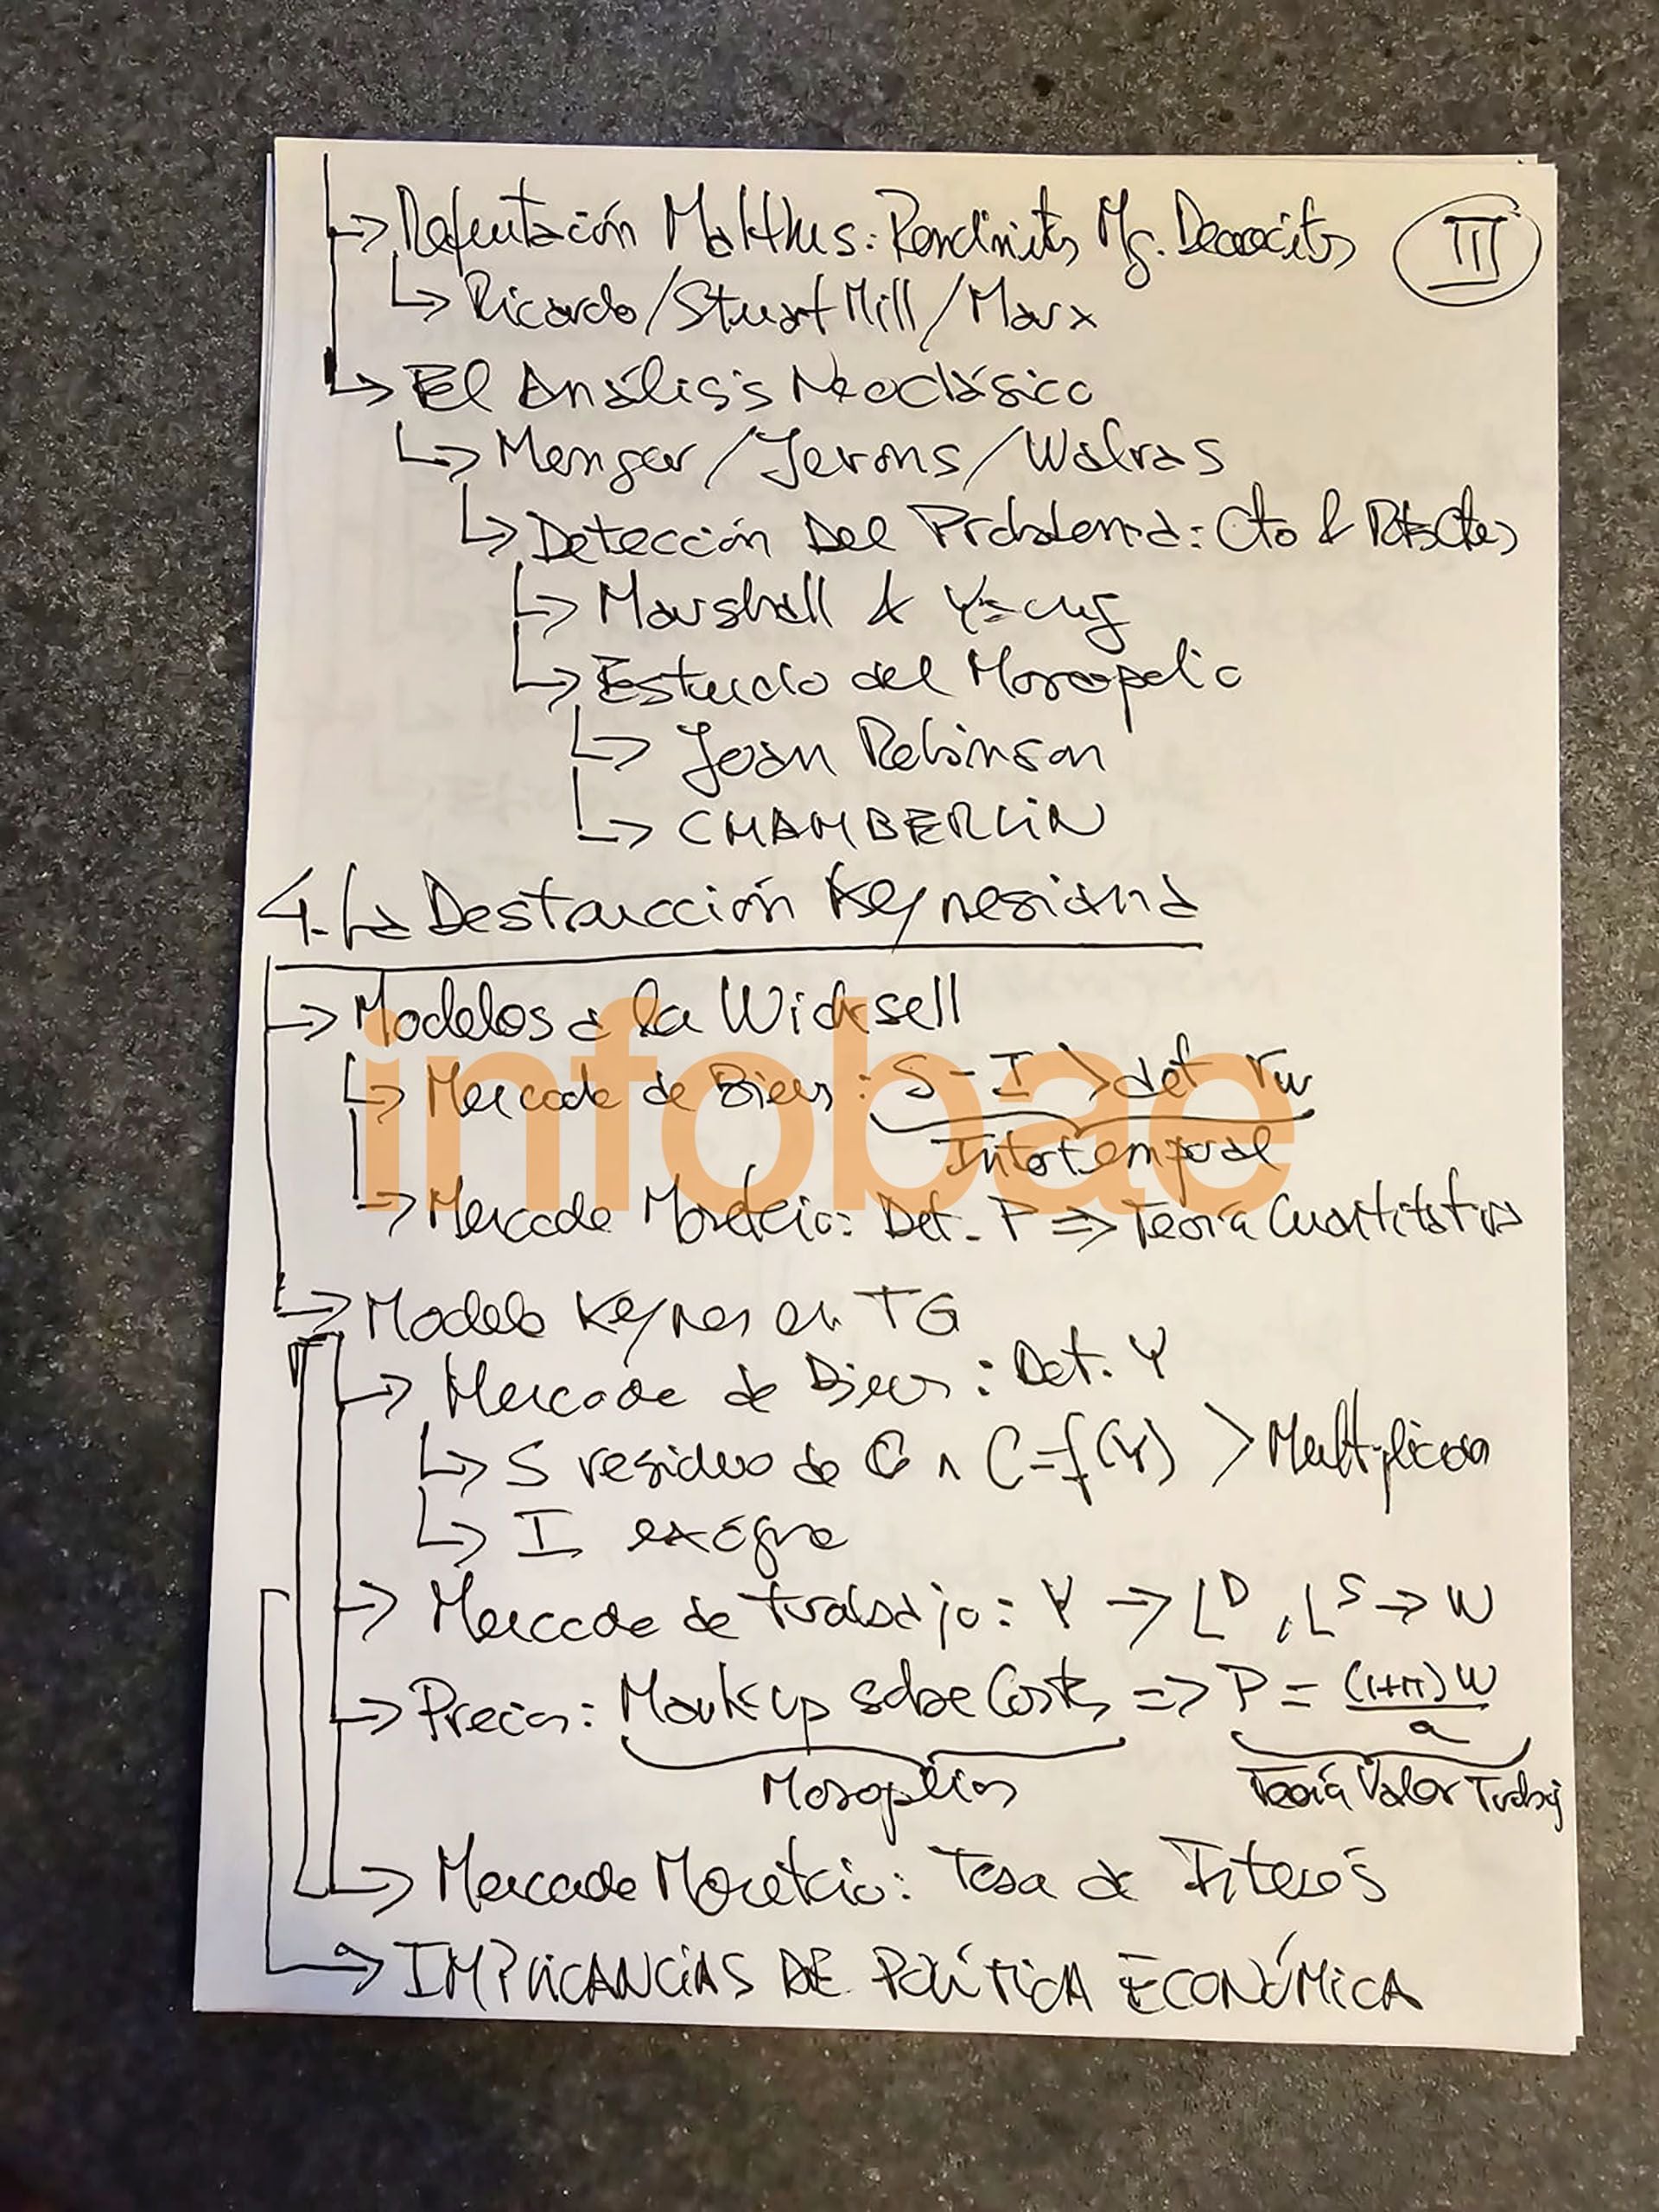 → Refutación Malthus: Rendimits Mg. Decrecits
III
↳ Ricardo/Stuart Mill/Marx
↳ El Análisis Neoclásico
↳ Menger/Jevons/Walras
↳ Detección Del Problema: Cto &
↳ Marshall & Young
↳ Estudio del Monopolio
↳ Joan Robinson
↳ CHAMBERLIN
4. La Destrucción Keynesiana
→ Modelos a la Wicksell
↳ Mercado de Bienes: S - I > det rw
Intertemporal
↳ Mercado Monetario: Det. P => Teoría Cuantitativa
↳ Modelo Keynes en TG
→ Mercado de Bienes: Det. Y
↳ S residuo de C ∧ C=f(Y) > Multiplicador
↳ I exógna
→ Mercado de trabajo: Y → L^D, L^S → W
→ Precios: Mark up sobre Costos => P = (1+π)W / a
Monopolios
Teoría Valor Trabaj
→ Mercado Monetario: Tasa de Interés
→ IMPLICANCIAS DE POLÍTICA ECONÓMICA
infobae